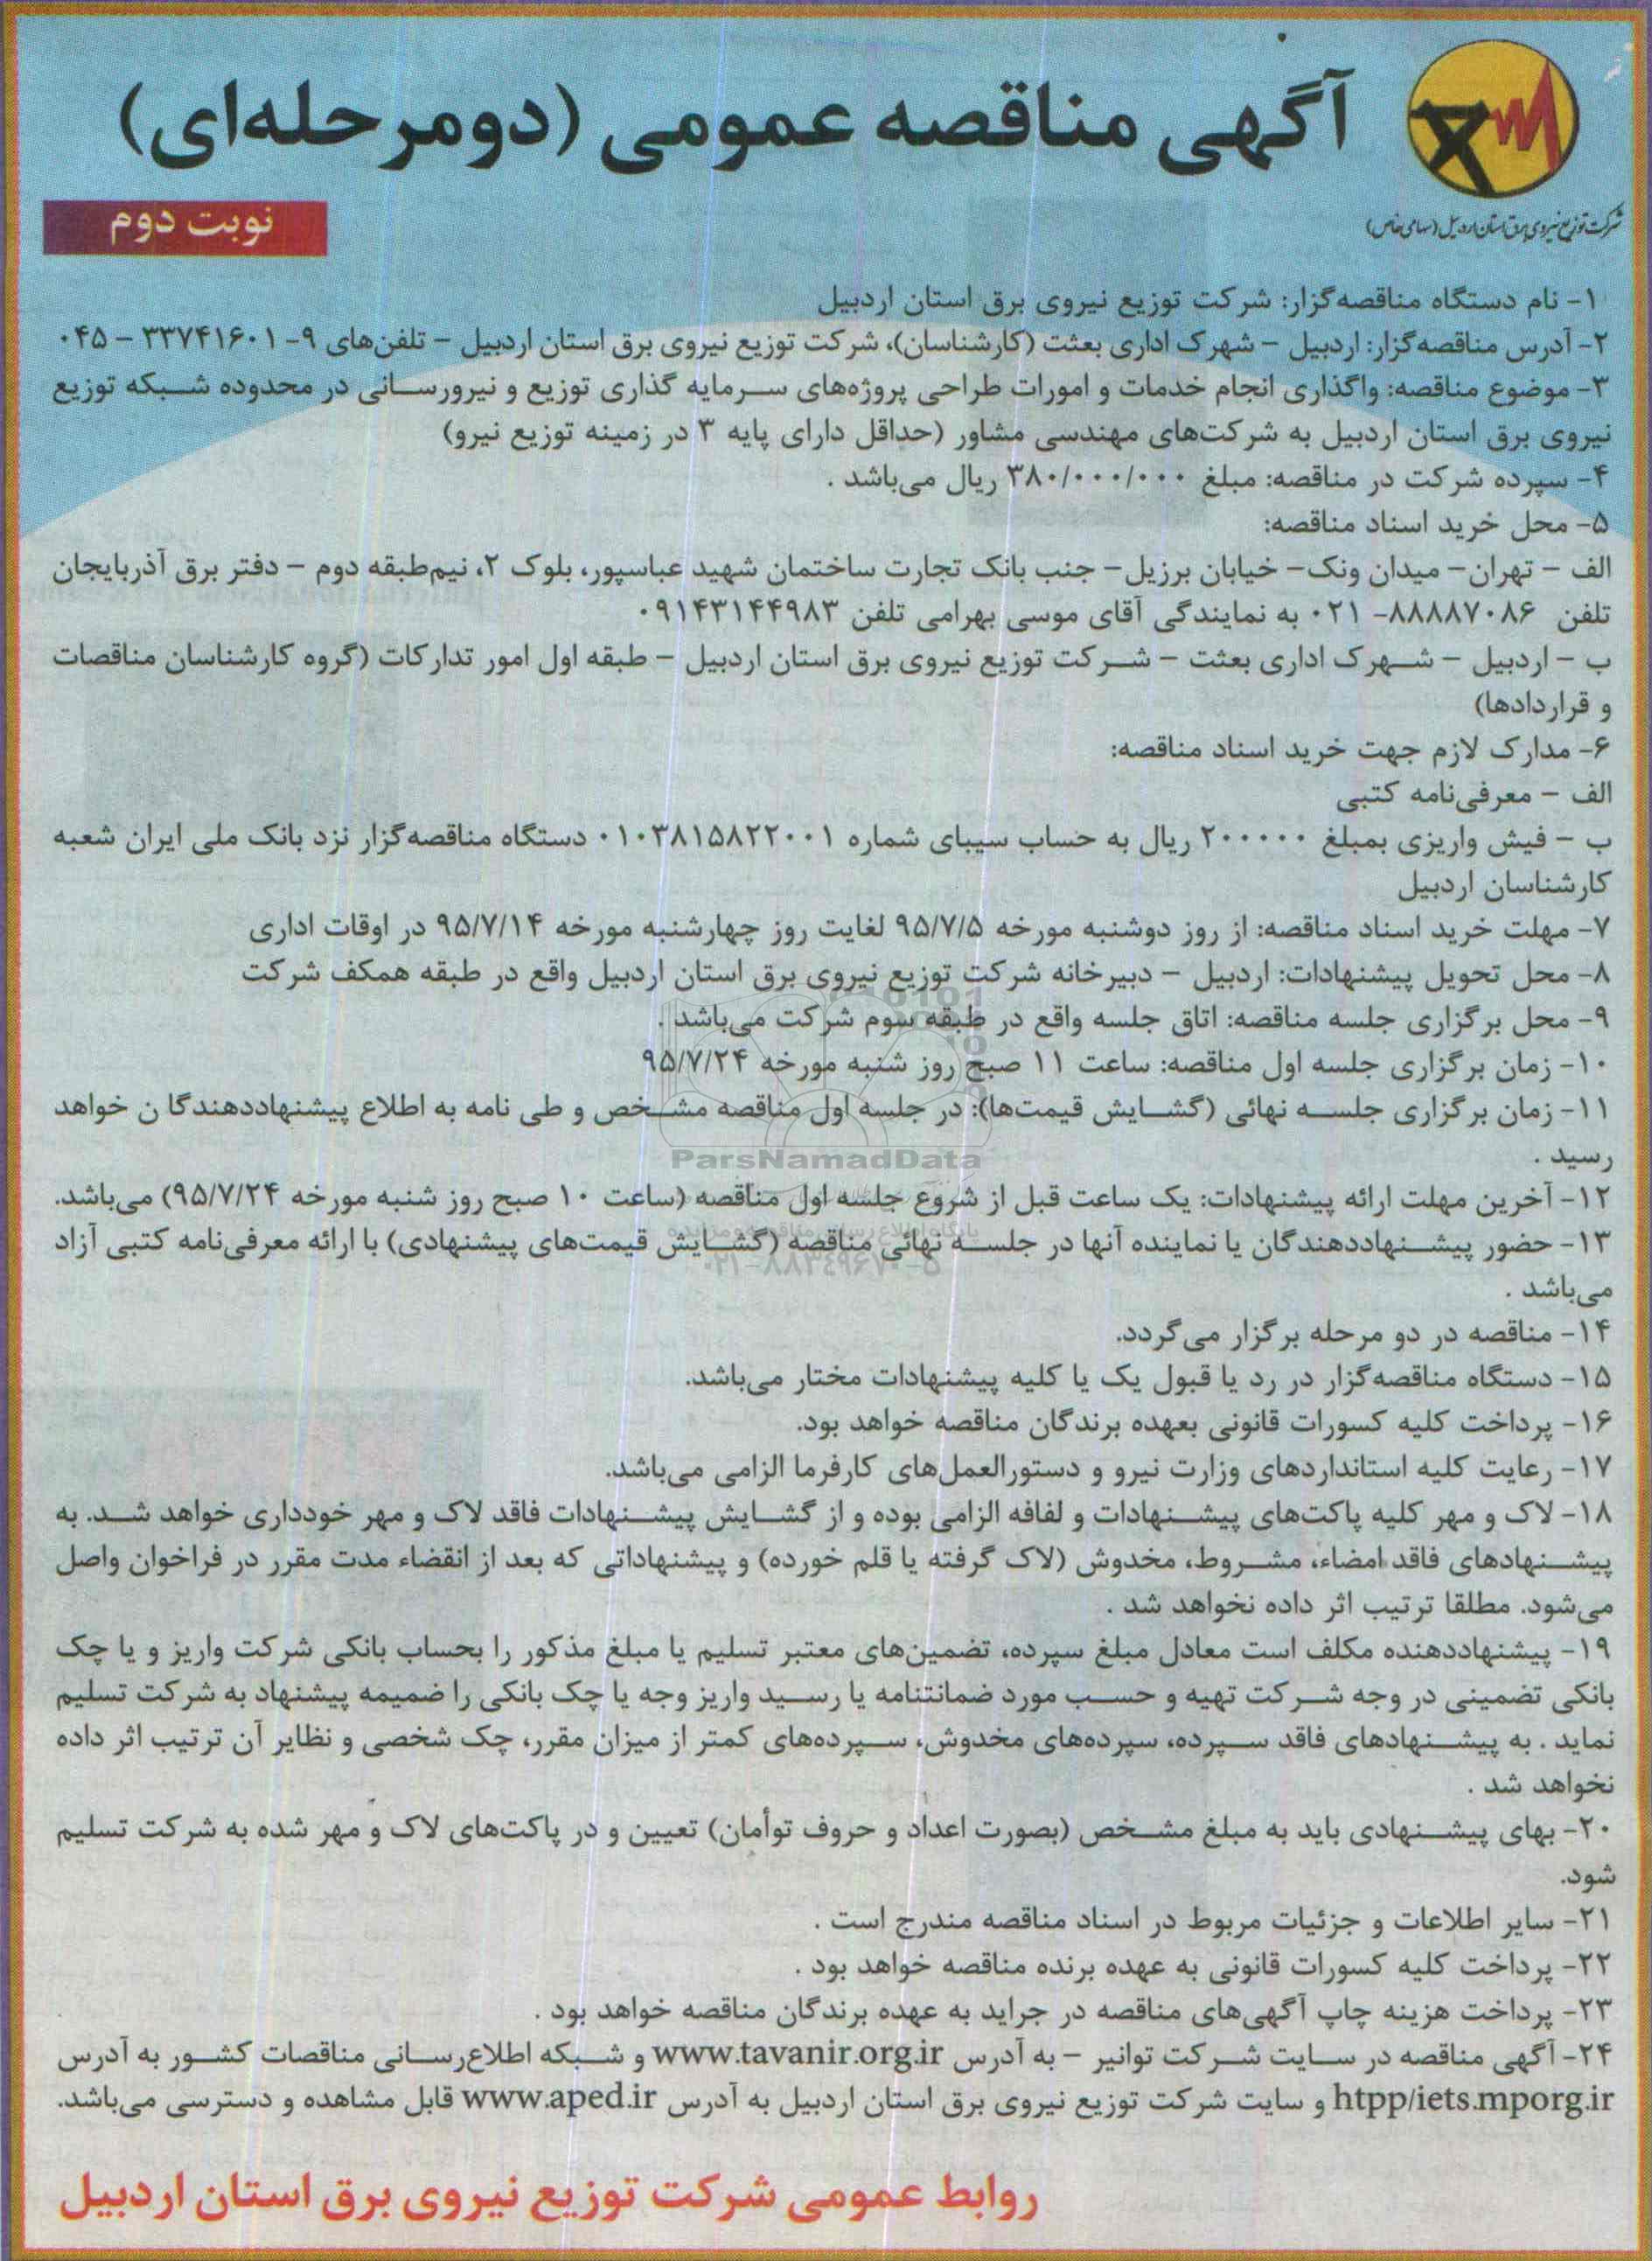 آگهی مناقصه عمومی (دومرحله‌ای)
شرکت توزیع نیروی برق استان اردبیل (سهامی خاص)
نوبت دوم
۱- نام دستگاه مناقصه‌گزار: شرکت توزیع نیروی برق استان اردبیل
۲- آدرس مناقصه‌گزار: اردبیل – شهرک اداری بعثت (کارشناسان)، شرکت توزیع نیروی برق استان اردبیل – تلفن‌های ۹-۳۳۷۴۱۶۰۱ – ۰۴۵
۳- موضوع مناقصه: واگذاری انجام خدمات و امورات طراحی پروژه‌های سرمایه گذاری توزیع و نیرورسانی در محدوده شبکه توزیع
نیروی برق استان اردبیل به شرکت‌های مهندسی مشاور (حداقل دارای پایه ۳ در زمینه توزیع نیرو)
۴- سپرده شرکت در مناقصه: مبلغ ۳۸۰/۰۰۰/۰۰۰ ریال می‌باشد .
۵- محل خرید اسناد مناقصه:
الف – تهران– میدان ونک– خیابان برزیل– جنب بانک تجارت ساختمان شهید عباسپور، بلوک ۲، نیم‌طبقه دوم – دفتر برق آذربایجان
تلفن ۸۸۸۸۷۰۸۶- ۰۲۱ به نمایندگی آقای موسی بهرامی تلفن ۰۹۱۴۳۱۴۴۹۸۳
ب – اردبیل – شهرک اداری بعثت – شرکت توزیع نیروی برق استان اردبیل – طبقه اول امور تدارکات (گروه کارشناسان مناقصات
و قراردادها)
۶- مدارک لازم جهت خرید اسناد مناقصه:
الف – معرفی‌نامه کتبی
ب – فیش واریزی بمبلغ ۲۰۰۰۰۰ ریال به حساب سیبای شماره ۰۱۰۳۸۱۵۸۲۲۰۰۱ دستگاه مناقصه‌گزار نزد بانک ملی ایران شعبه
کارشناسان اردبیل
۷- مهلت خرید اسناد مناقصه: از روز دوشنبه مورخه ۹۵/۷/۵ لغایت روز چهارشنبه مورخه ۹۵/۷/۱۴ در اوقات اداری
۸- محل تحویل پیشنهادات: اردبیل – دبیرخانه شرکت توزیع نیروی برق استان اردبیل واقع در طبقه همکف شرکت
۹- محل برگزاری جلسه مناقصه: اتاق جلسه واقع در طبقه سوم شرکت می‌باشد .
۱۰- زمان برگزاری جلسه اول مناقصه: ساعت ۱۱ صبح روز شنبه مورخه ۹۵/۷/۲۴
۱۱- زمان برگزاری جلسه نهائی (گشایش قیمت‌ها): در جلسه اول مناقصه مشخص و طی نامه به اطلاع پیشنهاددهندگا ن خواهد
رسید .
ParsNamadData
۱۲- آخرین مهلت ارائه پیشنهادات: یک ساعت قبل از شروع جلسه اول مناقصه (ساعت ۱۰ صبح روز شنبه مورخه ۹۵/۷/۲۴) می‌باشد.
۱۳- حضور پیشنهاددهندگان یا نماینده آنها در جلسه نهائی مناقصه (گشایش قیمت‌های پیشنهادی) با ارائه معرفی‌نامه کتبی آزاد
۰۲۱-۸۸۳۴۹۶۷۰-۵
می‌باشد .
۱۴- مناقصه در دو مرحله برگزار می‌گردد.
۱۵- دستگاه مناقصه‌گزار در رد یا قبول یک یا کلیه پیشنهادات مختار می‌باشد.
۱۶- پرداخت کلیه کسورات قانونی بعهده برندگان مناقصه خواهد بود.
۱۷- رعایت کلیه استانداردهای وزارت نیرو و دستورالعمل‌های کارفرما الزامی می‌باشد.
۱۸- لاک و مهر کلیه پاکت‌های پیشنهادات و لفافه الزامی بوده و از گشایش پیشنهادات فاقد لاک و مهر خودداری خواهد شد. به
پیشنهادهای فاقد امضاء، مشروط، مخدوش (لاک گرفته یا قلم خورده) و پیشنهاداتی که بعد از انقضاء مدت مقرر در فراخوان واصل
می‌شود. مطلقا ترتیب اثر داده نخواهد شد .
۱۹- پیشنهاددهنده مکلف است معادل مبلغ سپرده، تضمین‌های معتبر تسلیم یا مبلغ مذکور را بحساب بانکی شرکت واریز و یا چک
بانکی تضمینی در وجه شرکت تهیه و حسب مورد ضمانتنامه یا رسید واریز وجه یا چک بانکی را ضمیمه پیشنهاد به شرکت تسلیم
نماید . به پیشنهادهای فاقد سپرده، سپرده‌های مخدوش، سپرده‌های کمتر از میزان مقرر، چک شخصی و نظایر آن ترتیب اثر داده
نخواهد شد .
۲۰- بهای پیشنهادی باید به مبلغ مشخص (بصورت اعداد و حروف توأمان) تعیین و در پاکت‌های لاک و مهر شده به شرکت تسلیم
شود.
۲۱- سایر اطلاعات و جزئیات مربوط در اسناد مناقصه مندرج است .
۲۲- پرداخت کلیه کسورات قانونی به عهده برنده مناقصه خواهد بود .
۲۳- پرداخت هزینه چاپ آگهی‌های مناقصه در جراید به عهده برندگان مناقصه خواهد بود .
۲۴- آگهی مناقصه در سایت شرکت توانیر – به آدرس www.tavanir.org.ir و شبکه اطلاع‌رسانی مناقصات کشور به آدرس
htpp/iets.mporg.ir و سایت شرکت توزیع نیروی برق استان اردبیل به آدرس www.aped.ir قابل مشاهده و دسترسی می‌باشد.
روابط عمومی شرکت توزیع نیروی برق استان اردبیل